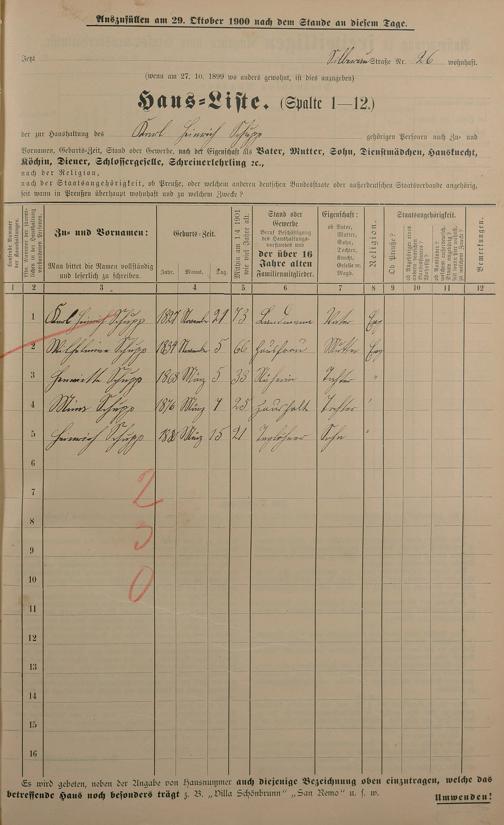 Auszufüllen am 29. Oktober 1900 nach dem Stande an diesem Tage.
Jetzt Straße Nr. 26 wohnhaft.
(wenn am 27. 10. 1899 wo anders gewohnt, ist dies anzugeben)
Haus-Liste. (Spalte 1—12.)
der zur Haushaltung des Karl Heinrich Schupp gehörigen Personen nach Zu- und
Vornamen, Geburts-Zeit, Stand oder Gewerbe, nach der Eigenschaft als Vater, Mutter, Sohn, Dienstmädchen, Hausknecht,
Köchin, Diener, Schlossergeselle, Schreinerlehrling ꝛc.,
nach der Religion,
nach der Staatsangehörigkeit, ob Preuße, oder welchem anderen deutschen Bundesstaate oder außerdeutschen Staatsverbande angehörig,
seit wann in Preußen überhaupt wohnhaft und zu welchem Zwecke?
Zu- und Vornamen:
Man bittet die Namen vollständig
und leserlich zu schreiben.
Geburts-Zeit.
Jahr. Monat. Tag.
Stand oder
Gewerbe
der über 16
Jahre alten
Familienmitglieder.
Eigenschaft:
ob Vater,
Mutter,
Sohn,
Tochter,
Knecht,
Geselle w.
Magd.
Religion.
Staatsangehörigkeit.
Ob Preuße?
Bemerkungen.
1 2 3 4 5 6 7 8 9 10 11 12
1 Karl Heinrich Schupp 1827 November 21 73 Landmann Vater Ev
2 Wilhelmine Schupp 1834 November 5 66 Hausfrau Mutter Ev
3 Henriette Schupp 1868 März 5 33 Näherin Tochter "
4 Schupp 1876 März 25 Haushalt Tochter "
5 Heinrich Schupp 1880 März 15 21 Taglöhner Sohn "
6
7
8
9
10
11
12
13
14
15
16
2
3
0
Es wird gebeten, neben der Angabe von Hausnummer auch diejenige Bezeichnung oben einzutragen, welche das
betreffende Haus noch besonders trägt z. B. „Villa Schönbrunn" „San Remo" u. s. w.
Umwenden!